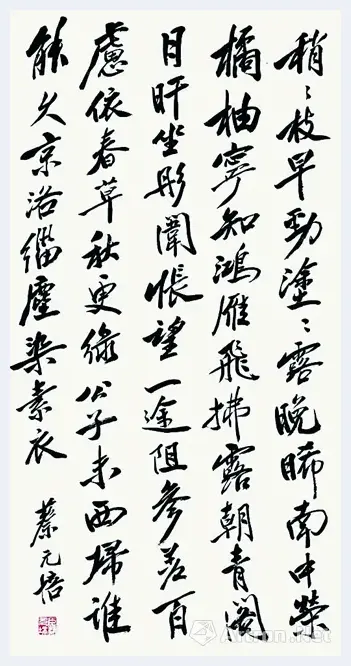 稍〻枝早勁塗〻露晚晞南中榮
橘柚寧知鴻雁飛拂露朝青閣
日旰坐彤闈悵望一途阻參差百
慮依春草秋更綠公子未西歸誰
能久京洛緇塵染素衣
蔡元培
Artron.Net